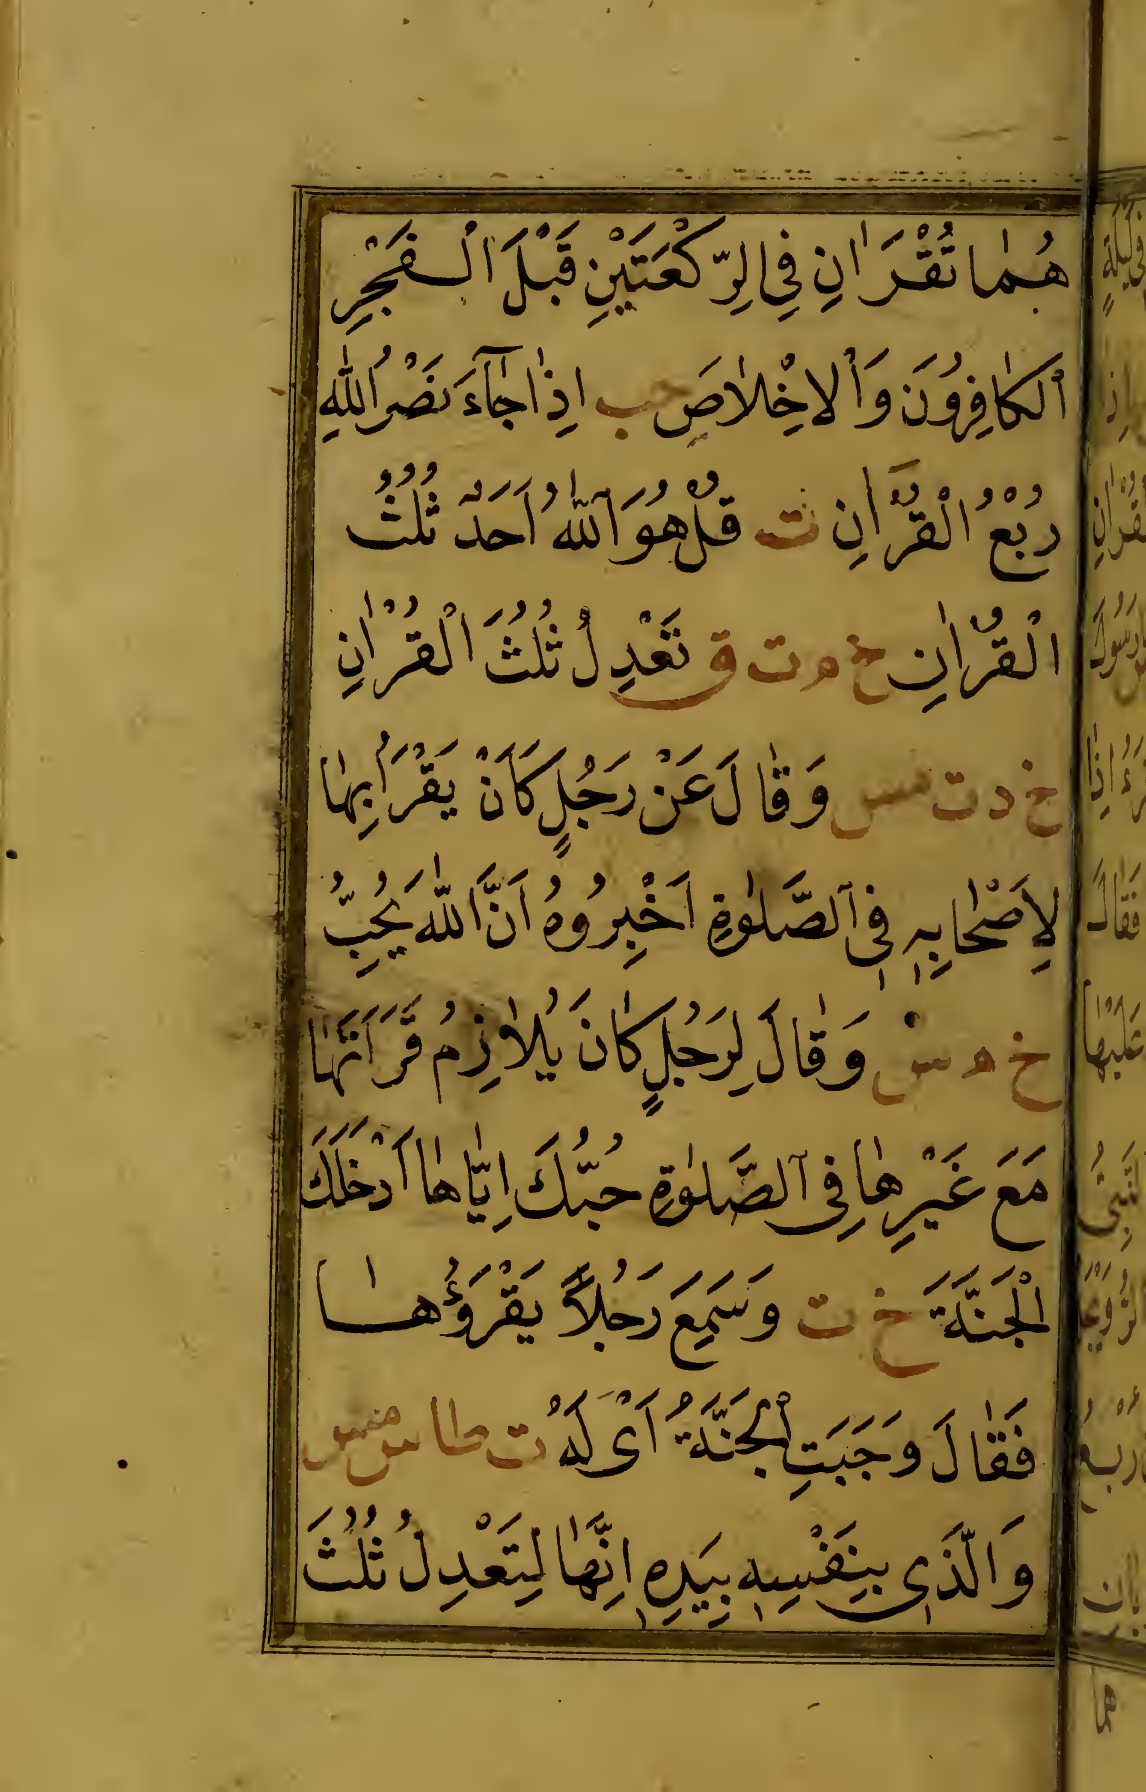 هُمٰا تُقْرَاٰنِ فِي الرِّكْعَتَيْنِ قَبْلَ الْفَجْرِ
اَلْكٰافِرُونَ وَالْاِخْلاٰصَ حب اِذٰا جٰآءَ نَصْرُ اللّٰهِ
رُبْعُ الْقُرْاٰنِ ت قُلْ هُوَ اللّٰهُ اَحَدٌ ثُلُثُ
الْقُرْاٰنِ خ م ت ق تَعْدِلُ ثُلُثَ الْقُرْاٰنِ
خ د ت س وَقٰالَ عَنْ رَجُلٍ كَانَ يَقْرَاُ بِهٰا
لِاَصْحٰابِهٖ فِى الصَّلٰوةِ اَخْبِرُوهُ اَنَّ اللّٰهَ يُحِبُّهُ
خ م س وَقٰالَ لِرَجُلٍ كٰانَ يُلاٰزِمُ قَرَاَتَهٰا
مَعَ غَيْرِهٰا فِى الصَّلٰوةِ حُبُّكَ اِيّٰاهٰا اَدْخَلَكَ
الْجَنَّةَ خ ت وَسَمِعَ رَجُلاً يَقْرَؤُهٰا
فَقٰالَ وَجَبَتِ الْجَنَّةُ اَىْ لَهُ ت طا س مس
وَالَّذٖى بِنَفْسٖهٖ بِيَدِهٖ اِنَّهٰا لِتَعْدِلُ ثُلُثَ
هما